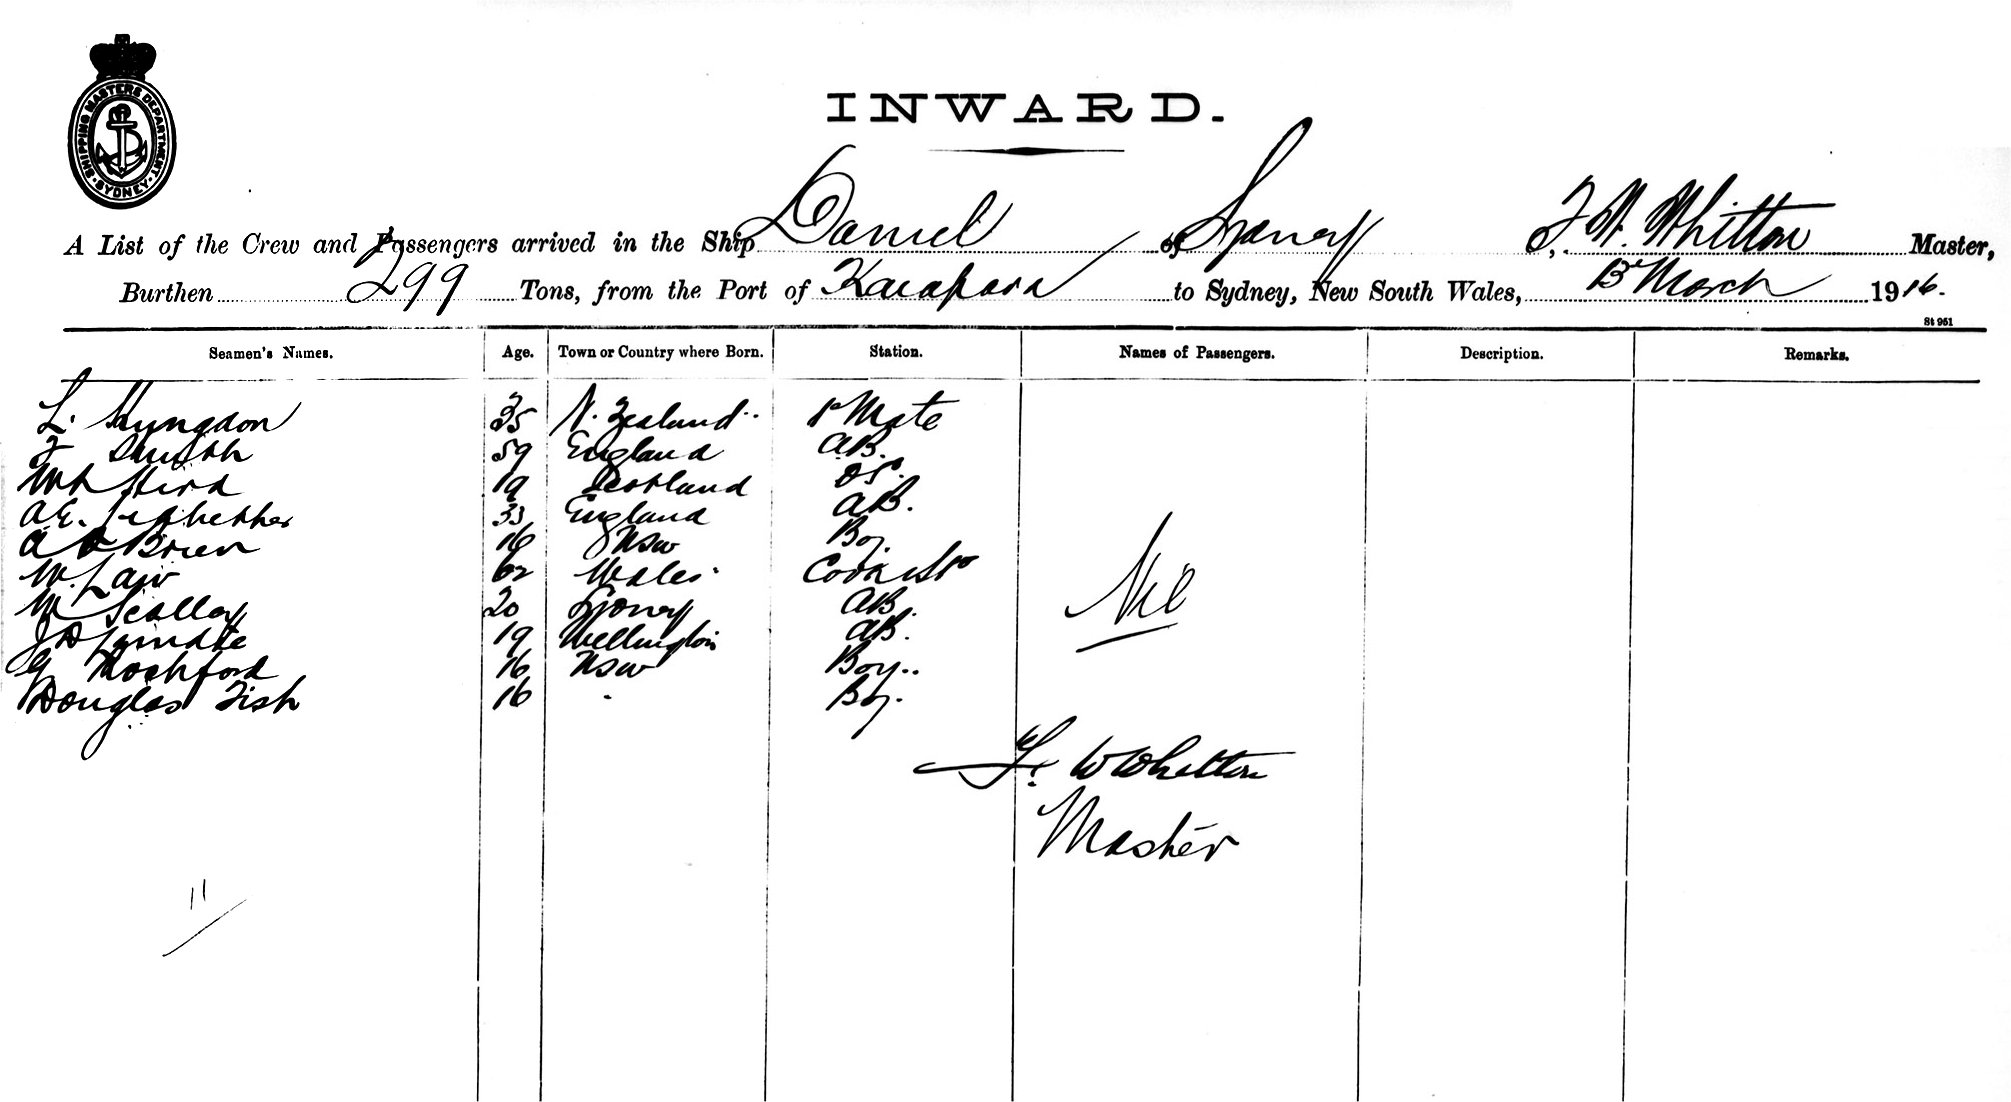 SHIPPING MASTERS DEPARTMENT
SYDNEY
INWARD.
A List of the Crew and Passengers arrived in the Ship Daniel of Sydney F. W. Whitton Master,
Burthen 299 Tons, from the Port of to Sydney, New South Wales, March 1916.
St 961
Seamen's Names. Age. Town or Country where Born. Station. Names of Passengers. Description. Remarks.
L. 35 N. Zealand 1st Mate
F Smith 59 England AB.
Wm Hird 19 Scotland OS.
A.E. 33 England AB.
A O'Brien 16 NSW Boy.
W. Law 62 Wales Cook & Std
M Scalley 20 Sydney AB.
J D 19 Wellington AB.
G Rochford 16 NSW Boy
Douglas Fish 16 Boy.
Nil
F. W Whitton
Master
11